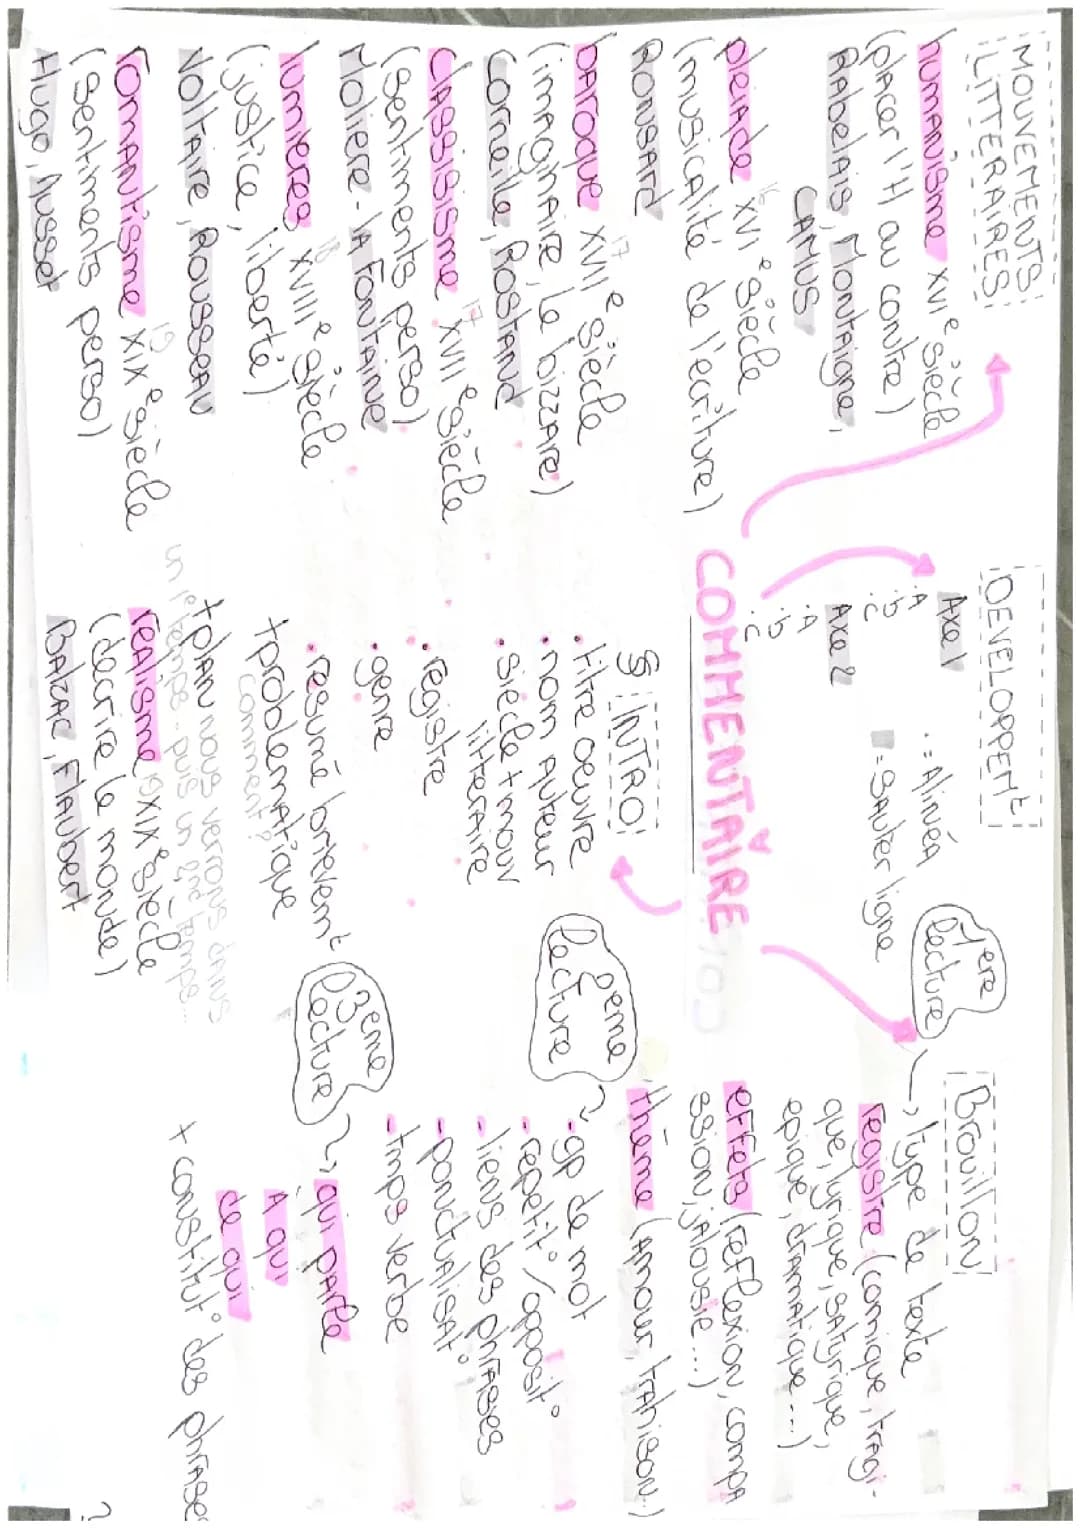 MOUVEMENTS
LITTERAIRES
humanisme XVIe siècle
(placer l'H au contre)
Rabelais, Montaigne,
CAMUS
pleiade XVIe siècle
16
(musicalité de l'ecriture)
RONSARD
baroque XVIIe siècle
17
(imaginaire, le bizzare)
Corneille, Rostand
classisisme XVIIe siècle
17
(sentiments perso)
Moliere - la Fontaine
lumieres XVIIIe siècle
18
(justice, liberté)
Voltaire, Rousseau
romantisme XIXe siècle
19
(sentiments perso)
Hugo, Musset
DEVELOPPEMt
Axe 1
.A
.b
.c
Axe 2
.A
.b
.c
. = Alinéa
= sauter ligne
COMMENTAIRE
§ INTRO
• titre oeuvre
• nom auteur
• siècle + mouv
litteraire
• registre
• genre
• resumé brievemt
+ problematique
comment?
+ plan nous verrons dans
un 1e temps.. puis un 2nd temps...
realisme XIXe siècle
19
(decrire le monde)
Balzac, Flaubert
Brouillon
1ere
lecture
type de texte
registre (comique, tragi-
que, lyrique, satyrique,
epique, dramatique...)
effets (reflexion, compa
ssion, jalousie...)
thème (amour, trahison..)
2eme
lecture
- gp de mot
- repetit°/opposit°
- liens des phrases
- ponctualisat°
- tmps verbe
3eme
lecture
qui parle
à qui
de qui
+ constitut° des phrases
?